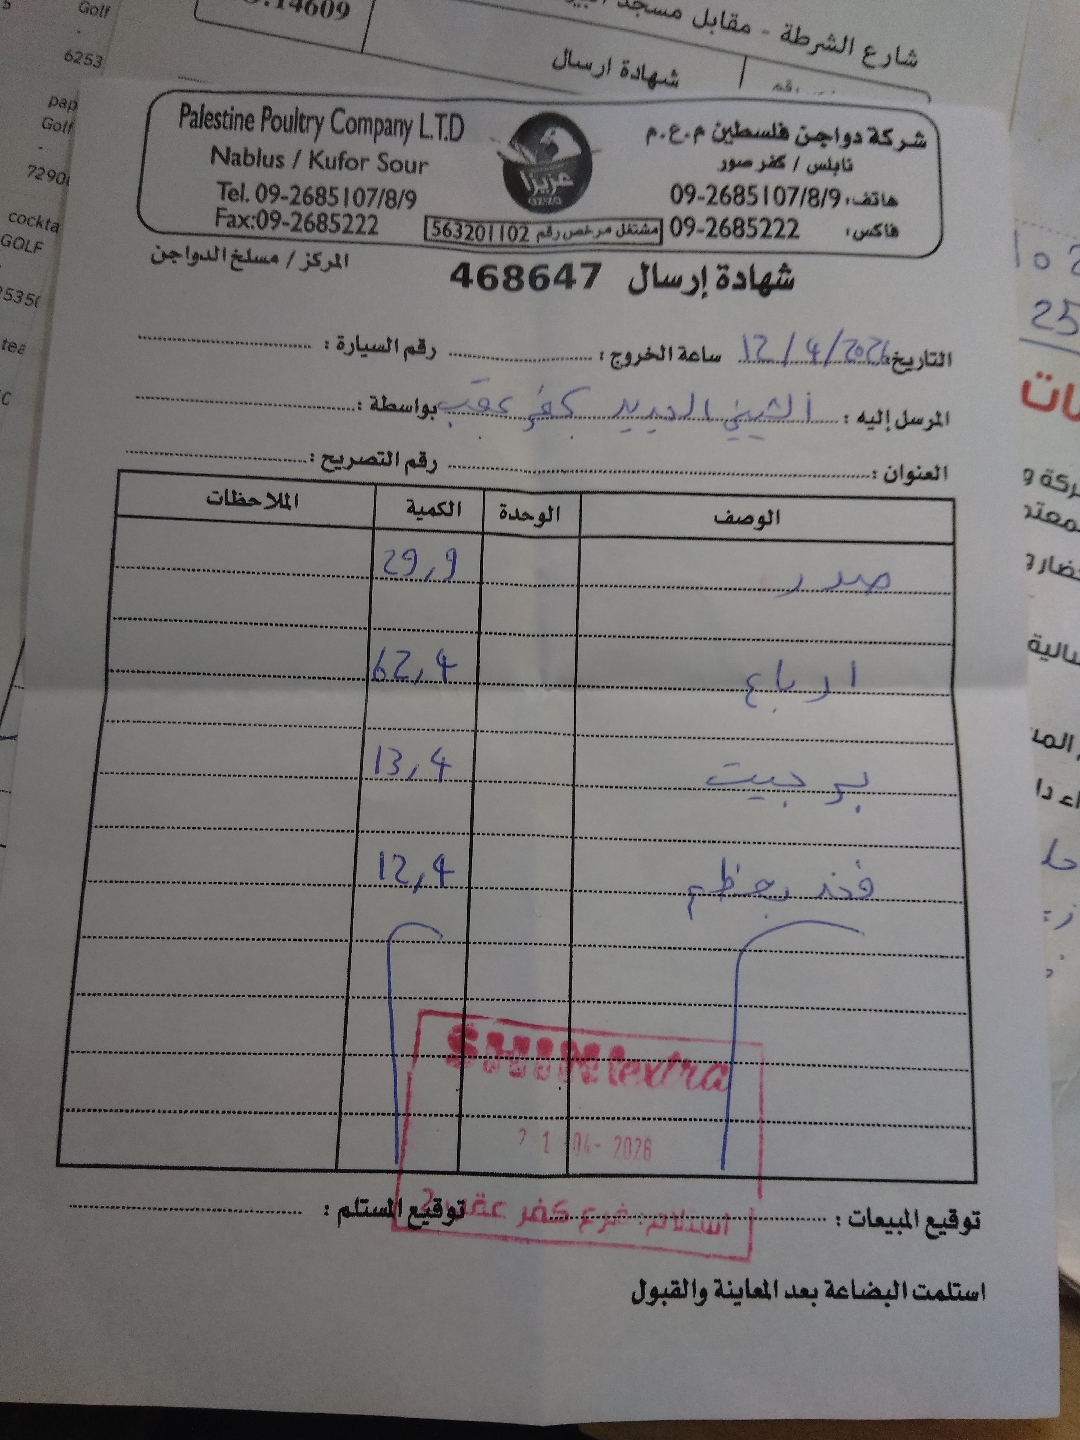 شارع الشرطة - مقابل مسجد
14609
شهادة ارسال
Golf
6253
pap
Golf
cockta
GOLF
tea
Palestine Poultry Company L.T.D
Nablus / Kufor Sour
Tel. 09-2685107/8/9
Fax:09-2685222
عزيزا
شركة دواجن فلسطين م.ع.م
نابلس / كفر صور
هاتف: 09-2685107/8/9
فاكس: 09-2685222
مشتغل مرخص رقم 563201102
المركز / مسلخ الدواجن
شهادة إرسال 468647
التاريخ: 12/4/2026 ساعة الخروج: رقم السيارة:
المرسل إليه: الشيني الجديد كفر عقب بواسطة:
العنوان: رقم التصريح:
الوصف الوحدة الكمية الملاحظات
صدر 29,9
ارباع 62,4
برجيت 13,4
فخذ بعظم 12,4
SHINI extra
21 04- 2026
استلام: فرع كفر عقب 2
توقيع المبيعات: توقيع المستلم:
استلمت البضاعة بعد المعاينة والقبول
25